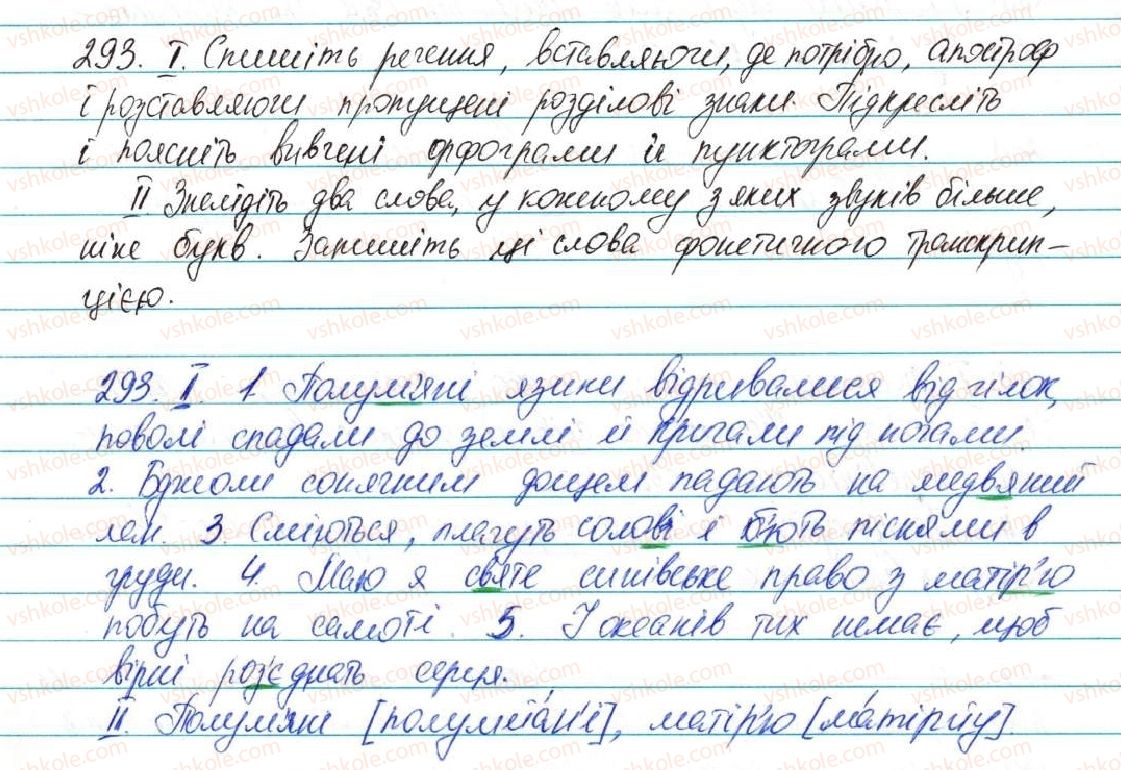 293. I. Спишіть речення, вставляючи, де потрібно, апостроф
і розставляючи пропущені розділові знаки. Підкресліть
і поясніть вивчені орфограми й пунктограми.
II. Знайдіть два слова, у кожному з яких звуків більше,
ніж букв. Запишіть ці слова фонетичного транскрип-
цією.
293. I. 1. Полум'яні язики відривалися від гілок,
поволі спадали до землі й пригали під ногами.
2. Бджоли сонячним дощем падають на медвяний
лан. 3. Сміються, плачуть солов'ї і б'ють піснями в
груди. 4. Маю я святе синівське право з матір'ю
побуть на самоті. 5. І океанів тих немає, щоб
вірні роз'єднать серця.
II. Полум'яні [полумйан'і], матір'ю [мат'ірйу].